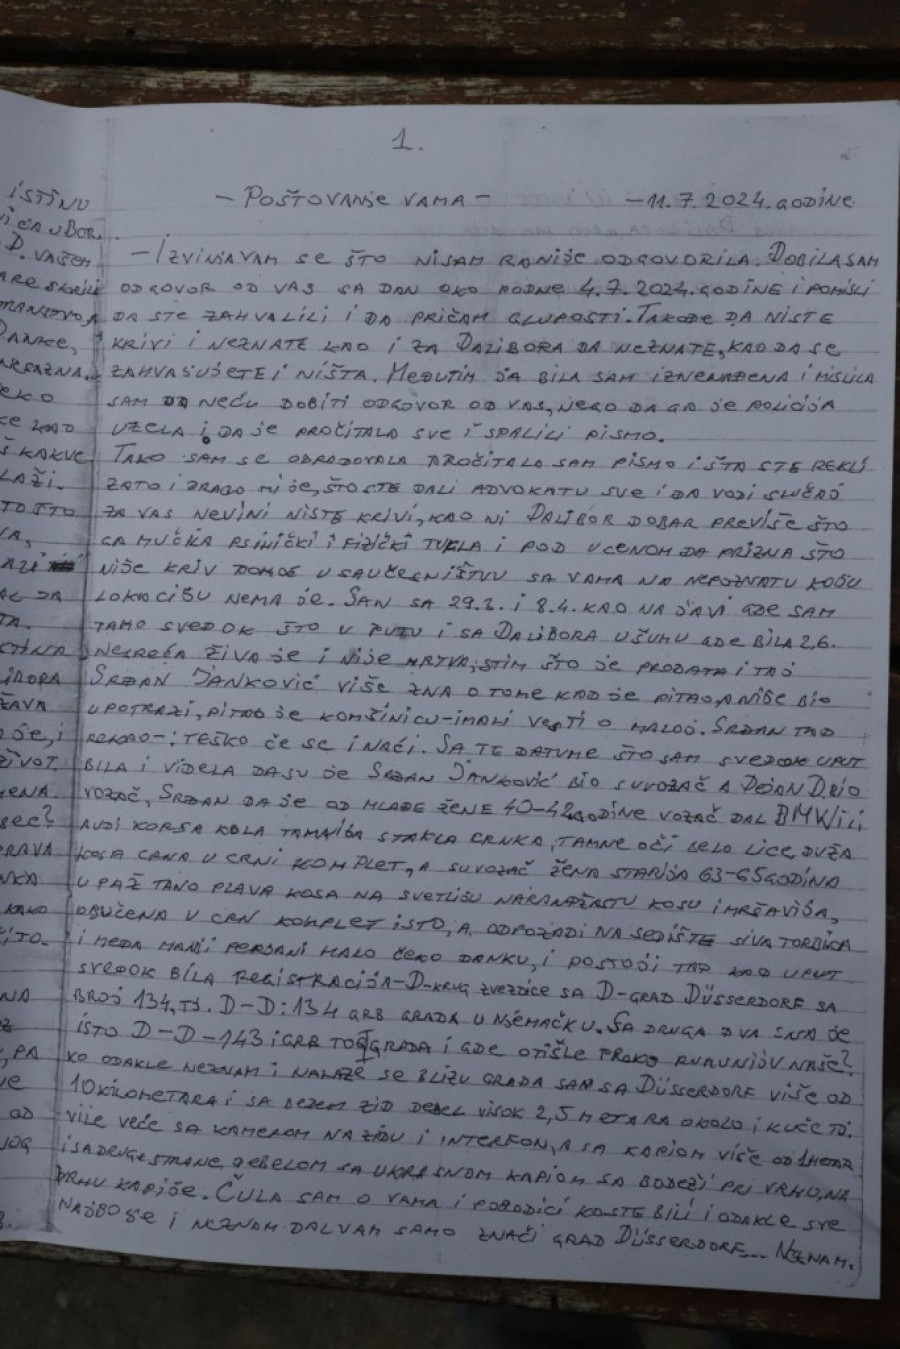 1.
- POŠTOVANJE VAMA - - 11.7.2024. GODINE
ISTINU
- IZVINJAVAM SE ŠTO NISAM RANIJE ODGOVORILA. DOBILA SAM
D. VAŠEM
ODGOVOR OD VAS SA DAN OKO PODNE 4.7.2024. GODINE I POMISLI
DA STE ZAHVALILI I DA PRIČAM GLUPOSTI. TAKOĐE DA NISTE
DANKE,
KRIVI I NEZNATE KAO I ZA DALIBORA DA NEZNATE, KAO DA SE
ZAHVAŠUJETE I NIŠTA. MEĐUTIM JA BILA SAM IZNENAĐENA I MISLILA
SAM DA NEĆU DOBITI ODGOVOR OD VAS, NEGO DA GA JE POLICIJA
UZELA I DA JE PROČITALA SVE I SPALILI PISMO.
KAKVE
TAKO SAM SE OBRADOVALA PROČITALA SAM PISMO I ŠTA STE REKLI
LAŽI.
ZATO I DRAGO MI JE, ŠTO STE DALI ADVOKATU SVE I DA VODI SLUČAJ
ZA VAS NEVINI NISTE KRIVI, KAO NI DALIBOR DOBAR PREVIŠE ŠTO
GA MUČKA PSIHIČKI I FIZIČKI TUKLA I POD UCENOM DA PRIZNA ŠTO
NIJE KRIV POMOĆ U SAUČESNIŠTVU SA VAMA NA NEPOZNATU KOJU
DA
LOKACIJU NEMA JE. SAN SA 29.2. I 8.4. KAO NA JAVI GDE SAM
TAMO SVEDOK ŠTO U PUTU I SA DALIBORA U ŠUMU GDE BILA 26.
NESREĆA ŽIVA JE I NIJE MRTVA, STIM ŠTO JE PRODATA I TAJ
SRĐAN JANKOVIĆ VIŠE ZNA O TOME KAD JE PITAO, A NIJE BIO
U POTRAZI, PITAO JE KOMŠINICU - IMALI VESTI O MALOJ. SRĐAN TAD
REKAO -: TEŠKO ĆE SE I NAĆI. SA TE DATUME ŠTO SAM SVEDOK UPUT
ŽIVOT.
BILA I VIDELA DA SU JE SRĐAN JANKOVIĆ BIO SUVOZAČ A DEJAN D. BIO
VOZAČ, SRĐAN DA JE OD MLAĐE ŽENE 40-42 GODINE VOZAČ DAL BMW ILI
AUDI KORSA KOLA TAMNIJA STAKLA CRNKA, TAMNE OČI BELO LICE, DUŽA
KOSA CRNA U CRNI KOMPLET, A SUVOZAČ ŽENA STARIJA 63-65 GODINA
UPAŽ TANO PLAVA KOSA NA SVETLIJU NARANDŽASTU KOSU I MRŠAVIJA,
KAKO
OBUČENA U CRN KOMPLET ISTO, A ODPOZADI NA SEDIŠTE SIVA TORBICA
I MEDA MANJI PERJANI MALO ČEKO DANKU, I POSTOJI TAD KAO UPUT
SVEDOK BILA REGISTRACIJA - D - KRUG ZVEZDICE SA D - GRAD DÜSSERDORF SA
NA
BROJ 134, TJ. D-D: 134 GRB GRADA U NJEMAČKU. SA DRUGA DVA SNA JE
ISTO D-D-143 I GRB TOG GRADA I GDE OTIŠLE PREKO RUMUNIJU NAŠE?
, PA
KO ODAKLE NEZNAM I NALAZE SE BLIZU GRADA SAM SA DÜSSERDORF VIŠE OD
10 KILOMETARA I SA BEDEM ZID DEBEL VISOK 2,5 METARA OKOLO I KUĆE TJ.
OD
VILE VEĆE SA KAMEROM NA ZIDU I INTERFON, A SA KAPIOM VIŠE OD 1 METAR
I SA DRUGE STRANE DEBELOM SA UKRASNOM KAPIOM SA BODEŽI PRI VRHU, NA
VRHU KAPIJE. ČULA SAM O VAMA I PORODICI KO STE BILI I ODAKLE SVE
NAJBOJE I NEZNAM DAL VAM SAMO ZNAČI GRAD DÜSSERDORF... NEZNAM.